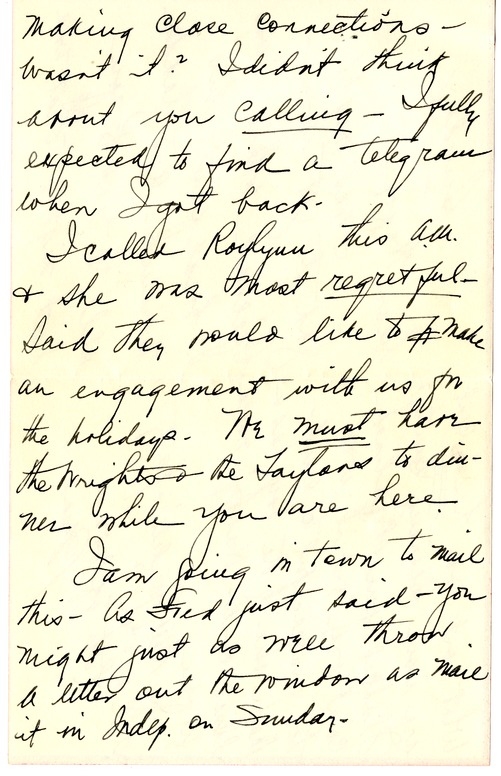 making close connections –
wasn't it? I didn't think
about you calling – I fully
expected to find a telegram
when I got back.
I called Roslynn this a.m.
& she was most regretful –
said they would like to make
an engagement with us for
the holidays. We must have
the Wrights & the Taylors to din-
ner while you are here.
I am going in town to mail
this – As Fred just said – you
might just as well throw
a letter out the window as mail
it in Indep. on Sunday –